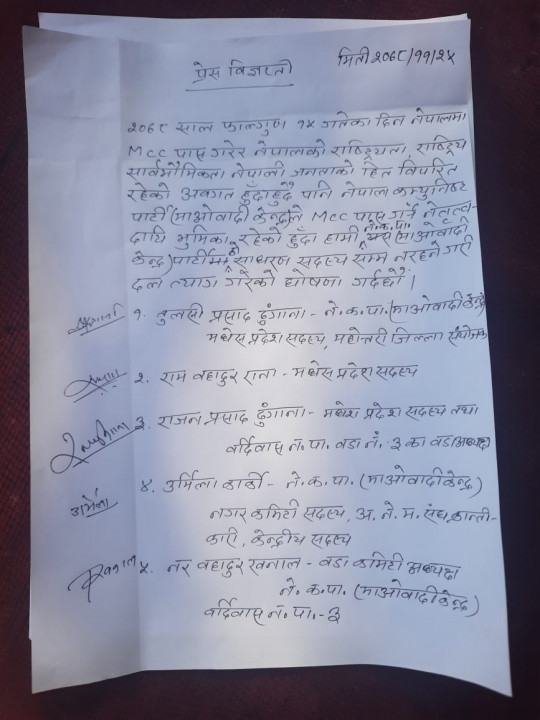 प्रेस विज्ञप्ती
मिती २०७८/११/१५
२०७८ साल फाल्गुण १५ गतेका दिन नेपालमा
Mcc पास गरेर नेपालको राष्ट्रियता, राष्ट्रिय
सार्वभौमिकता नेपाली जनताको हित विपरित
रहेको अवगत हुँदाहुँदै पनि नेपाल कम्युनिष्ट
पार्टी (माओवादी केन्द्र)ले Mcc पास गर्न नेतृत्व-
दायि भुमिका रहेको हुँदा हामी ने.क.पा. (माओवादी
केन्द्र) पार्टीमा को साधारण सदस्य सम्म नरहने गरी
दल त्याग गरेको घोषणा गर्दछौं।
१. तुलसी प्रसाद ढुंगाना - ने.क.पा. (माओवादी केन्द्र)
मधेस प्रदेश सदस्य, महोत्तरी जिल्ला संयोजक
२. राम बहादुर राना - मधेस प्रदेश सदस्य
३. राजन प्रसाद ढुंगाना - मधेश प्रदेश सदस्य तथा
वर्दिवास न.पा. वडा नं. ३ का वडा अध्यक्ष
४. उर्मिला कार्की - ने.क.पा. (माओवादी केन्द्र)
उर्मिला
नगर कमिटी सदस्य, अ.ने.म. संघ, क्रान्ती-
कारी, केन्द्रीय सदस्य
५. नर बहादुर खनाल - वडा कमिटी अध्यक्ष
ने.क.पा. (माओवादी केन्द्र)
वर्दिवास न.पा. - ३